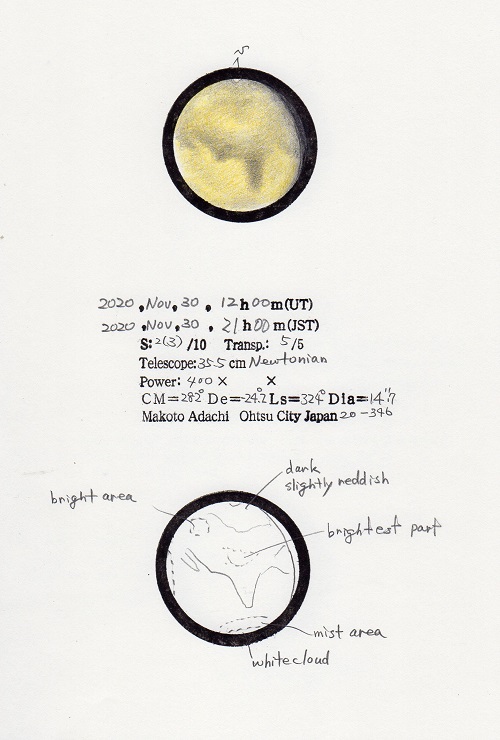 N
2020 , Nov, 30 , 12 h 00 m (UT)
2020 , Nov, 30 , 21 h 00 m (JST)
S: 2(3) /10 Transp.: 5/5
Telescope: 35.5 cm Newtonian
Power: 400 × ×
CM=282° De=-24.2° Ls=324° Dia=14".7
Makoto Adachi Ohtsu City Japan 20-346
dark
slightly reddish
bright area
brightest part
mist area
white cloud